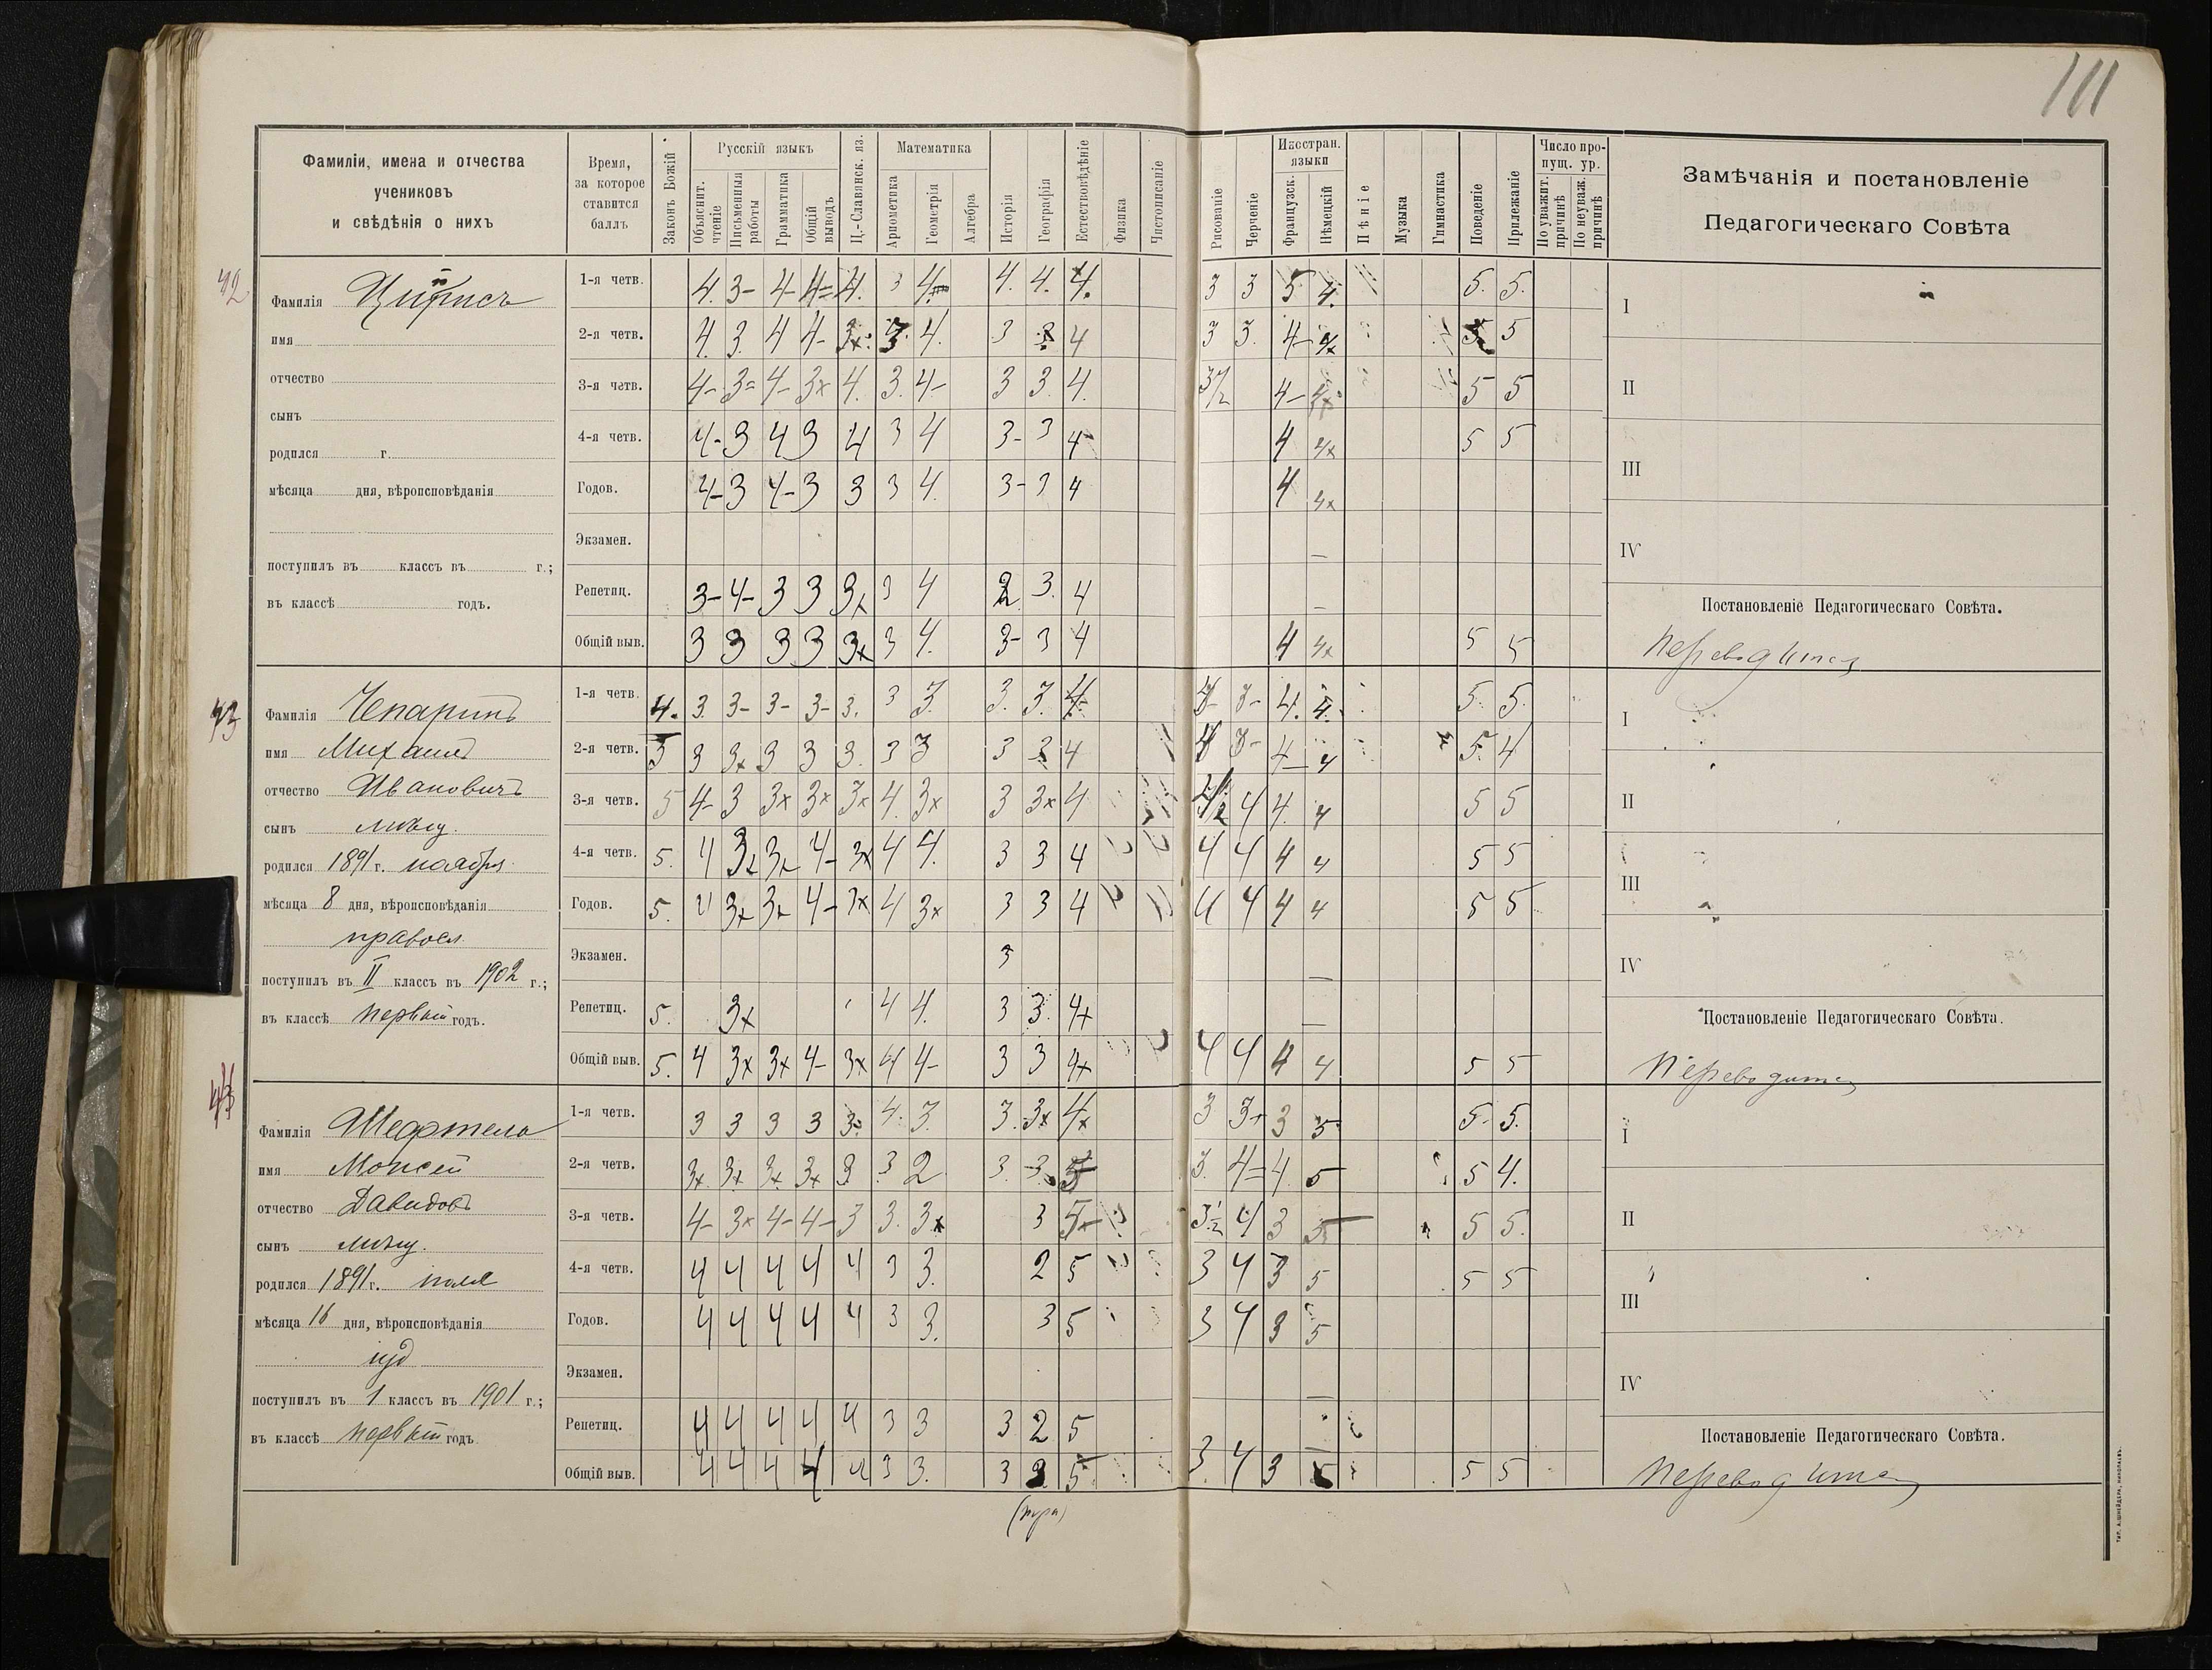 111
Фамиліи, имена и отчества
учениковъ
и свѣдѣнія о нихъ
Время,
за которое
ставится
баллъ
Законъ Божій
Русскій языкъ
Объяснит.
чтеніе
Письменныя
работы
Грамматика
Общій
выводъ
Ц.-Славянск. яз.
Математика
Ариөметика
Геометрія
Алгебра
Исторія
Географія
Естествовѣдѣніе
Физика
Чистописаніе
Рисованіе
Черченіе
Иностран.
языки
Французск.
Нѣмецкій
Пѣніе
Музыка
Гимнастика
Поведеніе
Прилежаніе
Число про-
пущ. ур.
По уважит.
причинѣ
По неуваж.
причинѣ
Замѣчанія и постановленіе
Педагогическаго Совѣта
42
Фамилія
имя
отчество
сынъ
родился г.
мѣсяца дня, вѣроисповѣданія
поступилъ въ классъ въ г.;
въ классѣ годъ.
1-я четв. 4. 3- 4- 4= 4. 3 4. 4. 4. 4. 3 3 5 4. 5. 5.
2-я четв. 4. 3. 4 4- 3х 3. 4. 3 3 4 3 3. 4- 4х 5 5
3-я четв. 4- 3= 4- 3х 4. 3. 4- 3 3. 4. 3½ 4- 4х 5 5
4-я четв. 4- 3 4 3 4 3 4 3- 3 4- 4 4х 5 5
Годов. 4- 3 4- 3 3 3 4. 3- 3 4 4 4х
Экзамен. —
Репетиц. 3- 4- 3 3 3х 3 4 2 3. 4 —
Общій выв. 3 3 3 3 3х 3 4. 3- 3 4 4 4х 5 5
I
II
III
IV
Постановленіе Педагогическаго Совѣта.
Переводится
43
Фамилія Чепаринъ
имя Михаилъ
отчество Ивановичъ
сынъ мѣщ.
родился 1891 г. ноября
мѣсяца 8 дня, вѣроисповѣданія
правосл.
поступилъ въ II классъ въ 1902 г.;
въ классѣ первый годъ.
1-я четв. 4. 3. 3- 3- 3- 3. 3 3. 3. 3. 4- 3- 3- 4. 4. 5. 5.
2-я четв. 5 3 3х 3 3 3. 3 3 3 3 4 4 3- 4- 4 5. 4
3-я четв. 5 4- 3 3х 3х 3х 4. 3х 3 3х 4 4½ 4 4. 4 5 5
4-я четв. 5. 4 3х 3х 4- 3х 4 4. 3 3 4 4 4 4 4 5 5
Годов. 5. 4 3х 3х 4- 3х 4 3х 3 3 4 4 4 4 4 5 5
Экзамен. 3 —
Репетиц. 5. 3х 4 4. 3 3. 4х —
Общій выв. 5. 4 3х 3х 4- 3х 4 4- 3 3 4х 4 4 4 4 5 5
I
II
III
IV
Постановленіе Педагогическаго Совѣта.
Переводится
Фамилія Шефтель
имя Моисей
отчество Давидовъ
сынъ мѣщ.
родился 1891 г.
мѣсяца 16 дня, вѣроисповѣданія
іуд
поступилъ въ 1 классъ въ 1901 г.;
въ классѣ первый годъ
1-я четв. 3 3 3 3 3= 4. 3. 3. 3х 4х 3 3+ 3 5 5- 5.
2-я четв. 3х 3х 3х 3х 3 3 2 3. 3. 5 3. 4= 4. 5 5 4.
3-я четв. 4- 3х 4- 4- 3 3. 3х 3 5- 3½ 4 3 5 5 5.
4-я четв. 4 4 4 4 4 3 3. 2 5 3 4 3 5 5 5
Годов. 4 4 4 4 4 3 3. 3 5 3 4 3 5
Экзамен. —
Репетиц. 4 4 4 4 4 3 3 3 2 5 —
Общій выв. 4 4 4 4 4 3 3. 3 3 5. 3. 4 3 5 5 5
I
II
III
IV
Постановленіе Педагогическаго Совѣта.
Переводится
(три)
ТИП. А. ШНЕЙДЕРА, НИКОЛАЕВЪ.